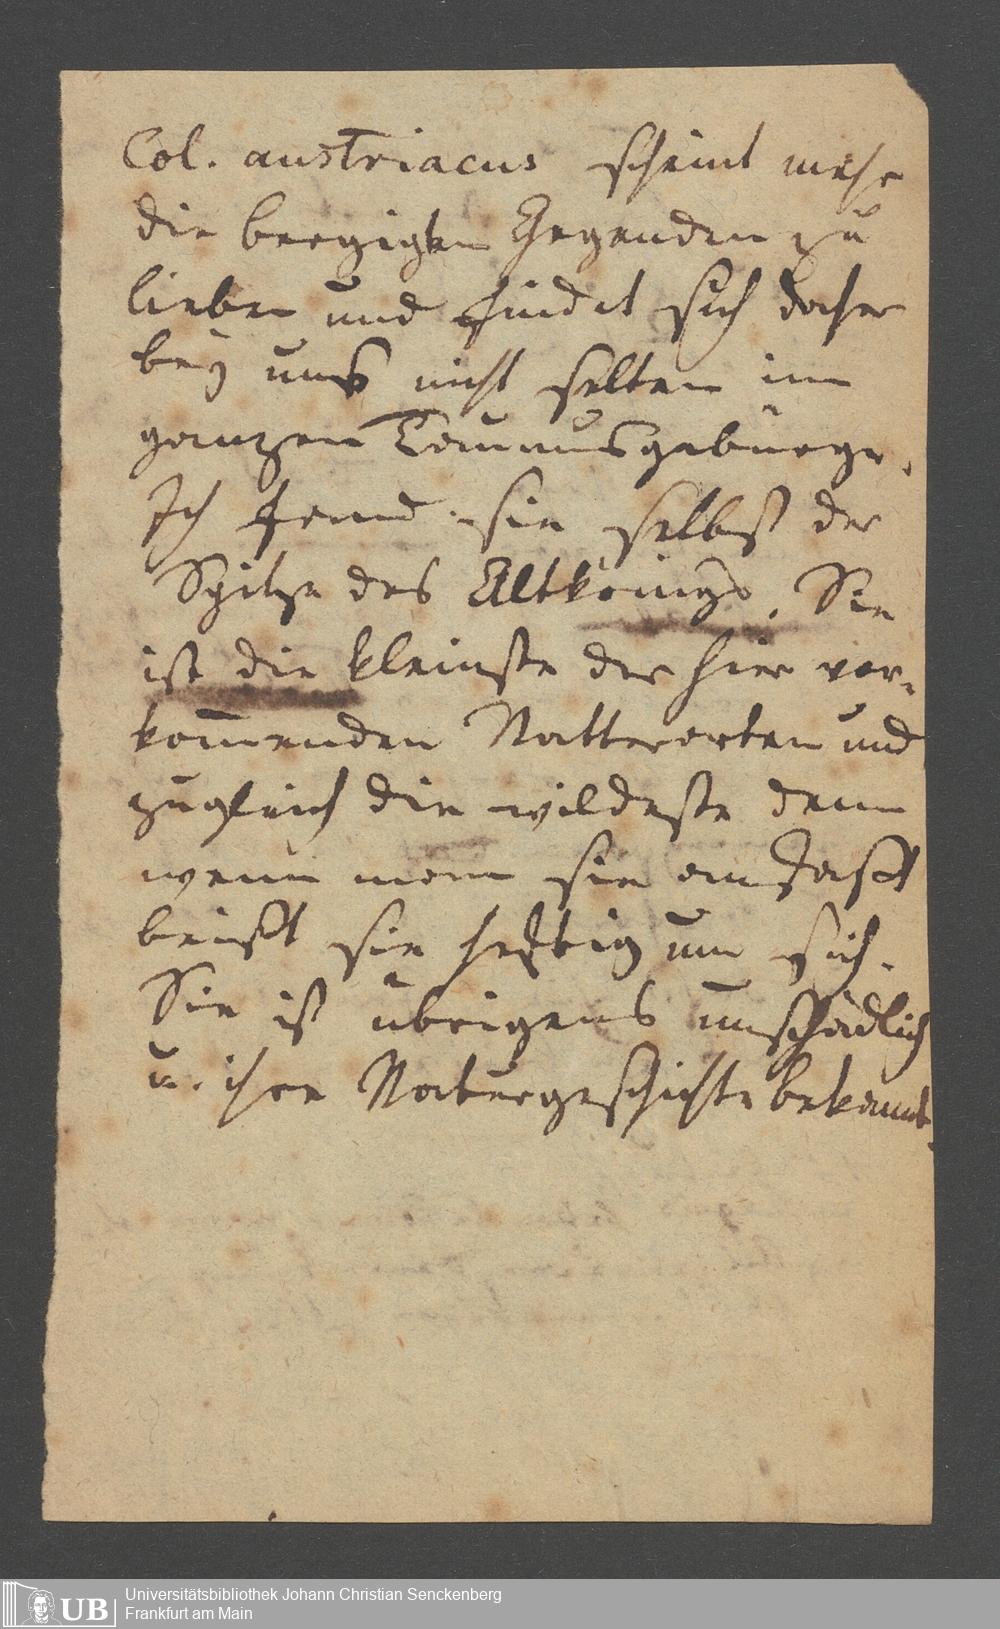 Col. austriacus scheint mehr
die bergigten Gegenden zu
lieben und findet sich daher
bey uns nicht selten im
ganzen Taunusgebürge.
Ich fand sie selbst der
Spitze des Altkönigs. Sie
ist die kleinste der hier vor-
kom̅enden Natterarten und
zugleich die wildeste denn
wenn man sie anfaßt
beißt sie heftig um sich.
Sie ist übrigens unschädlich
u. ihre Naturgeschichte bekannt.
UB
Universitätsbibliothek Johann Christian Senckenberg
Frankfurt am Main